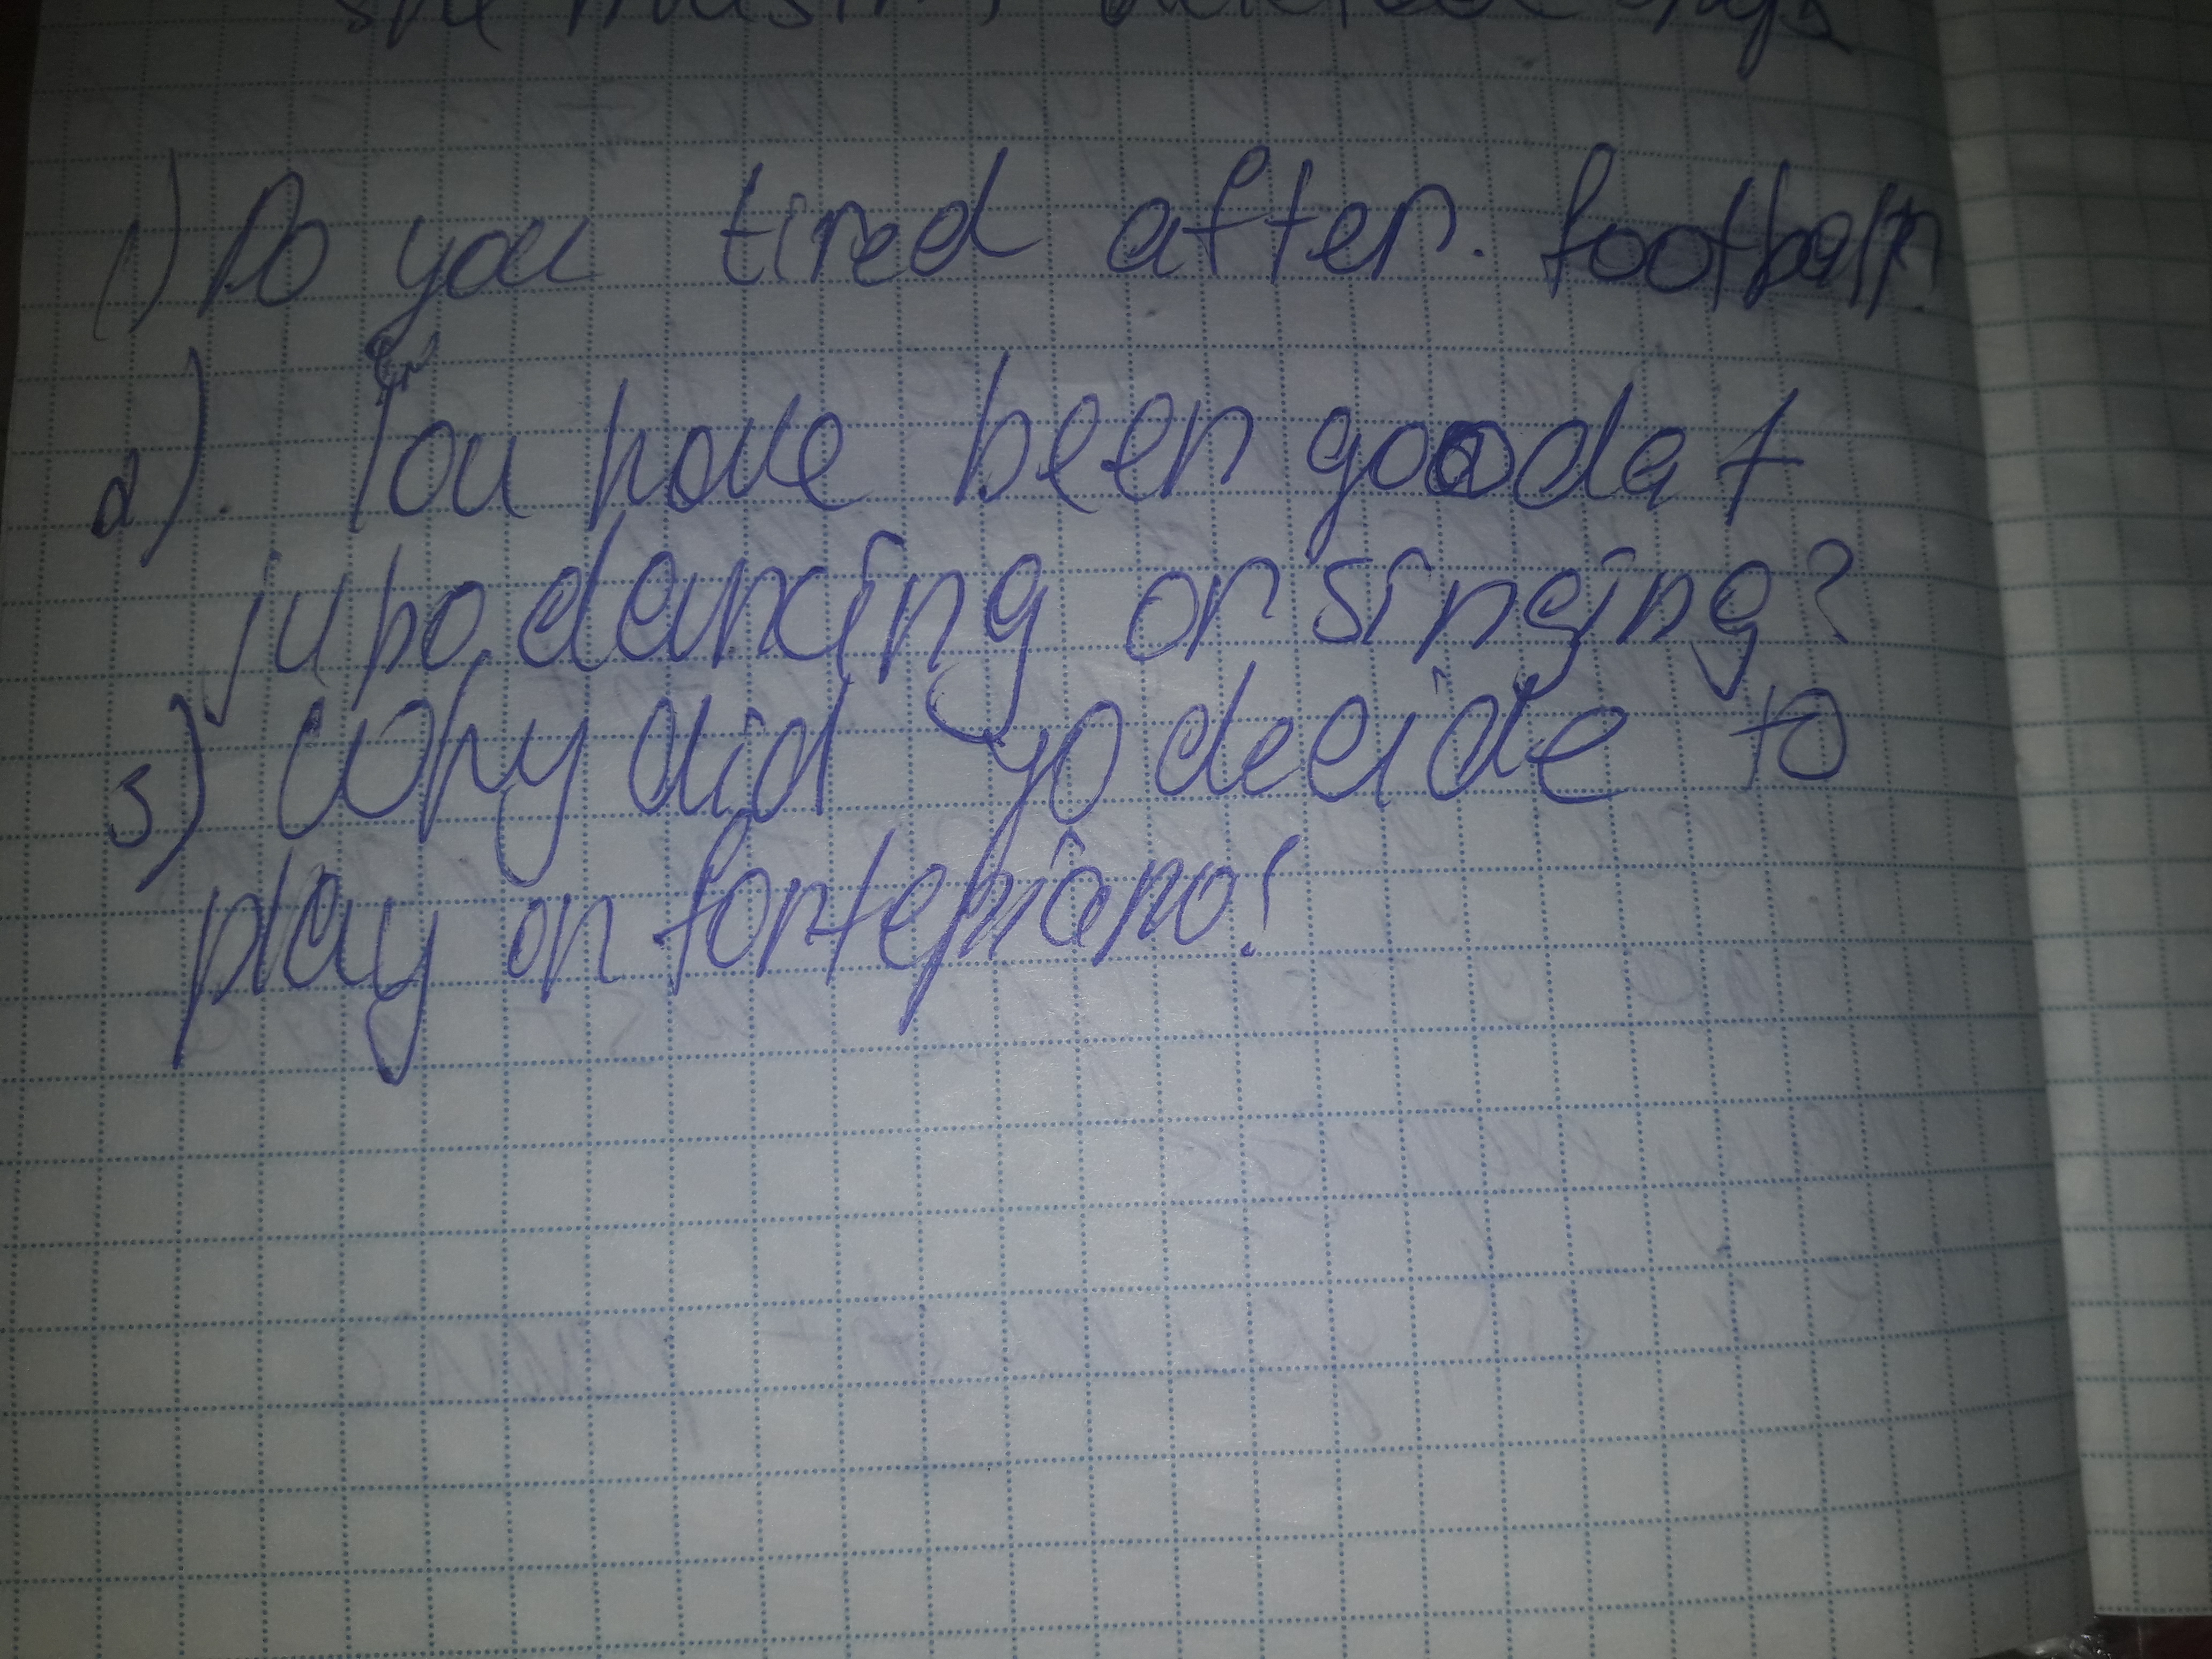 she mustn't
1) Do you tired after. football?
2). You have been good at
judo, dancing or singing?
3) Why did yo decide to
play on fortepiano?